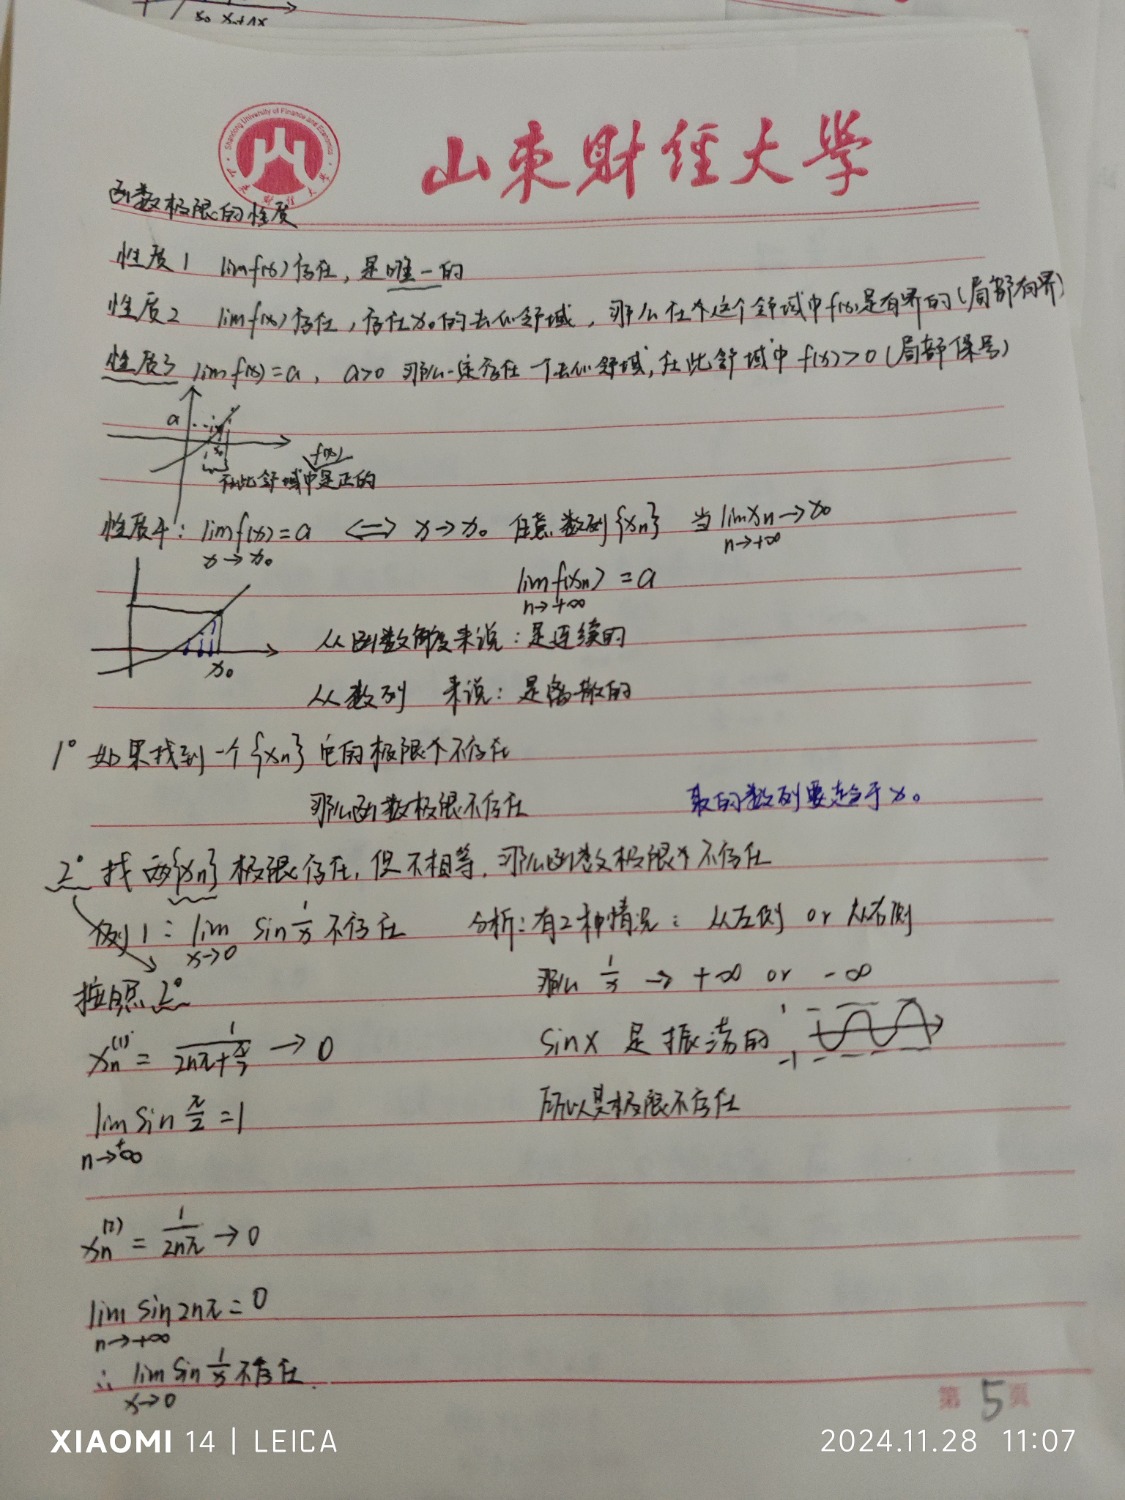 x₀ x₀+Δx
Shandong University of Finance and Economics
山東财经大学
山東财经大学
函数极限的性质
性质1 limf(x)存在,是唯一的
性质2 limf(x)存在,存在x₀的去心邻域,那么在个这个邻域中f(x)是有界的(局部有界)
性质3 limf(x)=a, a>0 那么一定存在一个去心邻域,在此邻域中 f(x)>0(局部保号)
a
x₀
f(x)
在此邻域中是正的
性质4: limf(x)=a ⟺ x→x₀ 任意数列{xn} 当limxn→x₀
x→x₀ n→+∞
limf(xn)=a
n→+∞
从函数角度来说:是连续的
x₀
从数列 来说:是离散的
1° 如果找到一个{xn} 它的极限个不存在
那么函数极限不存在 取的数列要趋于x₀
2° 找两{xn}极限存在,但不相等,那么函数极限个不存在
例1: lim sin 1/x 不存在 分析:有2种情况:从左侧 or 从右侧
x→0
那么 1/x → +∞ or -∞
按照2°
xn⁽¹⁾ = 1/(2nπ+π/2) → 0 sinx 是振荡的 1 -1
lim sin π/2 =1 所以其极限不存在
n→+∞
xn⁽²⁾ = 1/2nπ → 0
lim sin2nπ=0
n→+∞
∴ lim sin 1/x 不存在.
x→0
第5頁
XIAOMI 14 | LEICA 2024.11.28 11:07